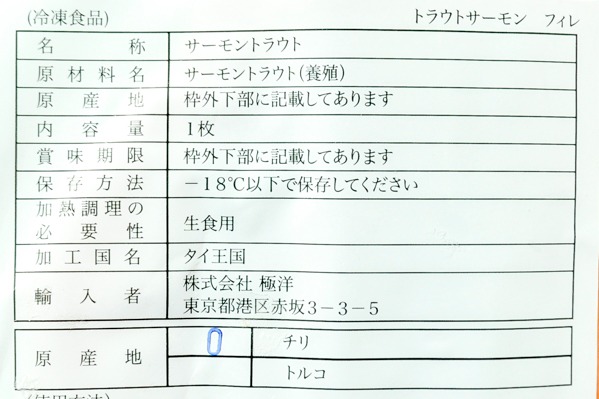 (冷凍食品) トラウトサーモン フィレ
名称 サーモントラウト
原材料名 サーモントラウト(養殖)
原産地 枠外下部に記載してあります
内容量 1枚
賞味期限 枠外下部に記載してあります
保存方法 −18℃以下で保存してください
加熱調理の
必要性 生食用
加工国名 タイ王国
輸入者 株式会社 極洋
東京都港区赤坂3−3−5
原産地 0 チリ
トルコ